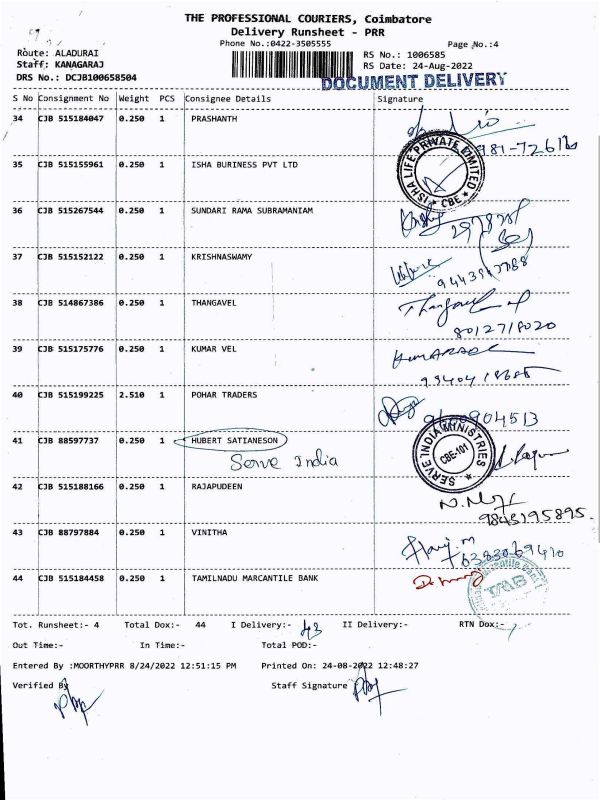 THE PROFESSIONAL COURIERS, Coimbatore
Delivery Runsheet - PRR
Phone No.:0422-3505555
Page No.:4
Route: ALADURAI
Staff: KANAGARAJ
DRS No.: DCJB100658504
RS No.: 1006585
RS Date: 24-Aug-2022
DOCUMENT DELIVERY
S No Consignment No Weight PCS Consignee Details Signature
34 CJB 515184047 0.250 1 PRASHANTH
35 CJB 515155961 0.250 1 ISHA BURINESS PVT LTD
ISHA LIFE PRIVATE LIMITED CBE
36 CJB 515267544 0.250 1 SUNDARI RAMA SUBRAMANIAM
37 CJB 515152122 0.250 1 KRISHNASWAMY
38 CJB 514867386 0.250 1 THANGAVEL
8012718020
39 CJB 515175776 0.250 1 KUMAR VEL
40 CJB 515199225 2.510 1 POHAR TRADERS
41 CJB 88597737 0.250 1 HUBERT SATIANESON
Serve India
SERVE INDIA MINISTRIES CBE-101
42 CJB 515188166 0.250 1 RAJAPUDEEN
9845195895
43 CJB 88797884 0.250 1 VINITHA
6383069410
44 CJB 515184458 0.250 1 TAMILNADU MARCANTILE BANK
TMB
Tot. Runsheet:- 4 Total Dox:- 44 I Delivery:- 43 II Delivery:- RTN Dox:-
Out Time:- In Time:- Total POD:-
Entered By :MOORTHYPRR 8/24/2022 12:51:15 PM Printed On: 24-08-2022 12:48:27
Verified By Staff Signature